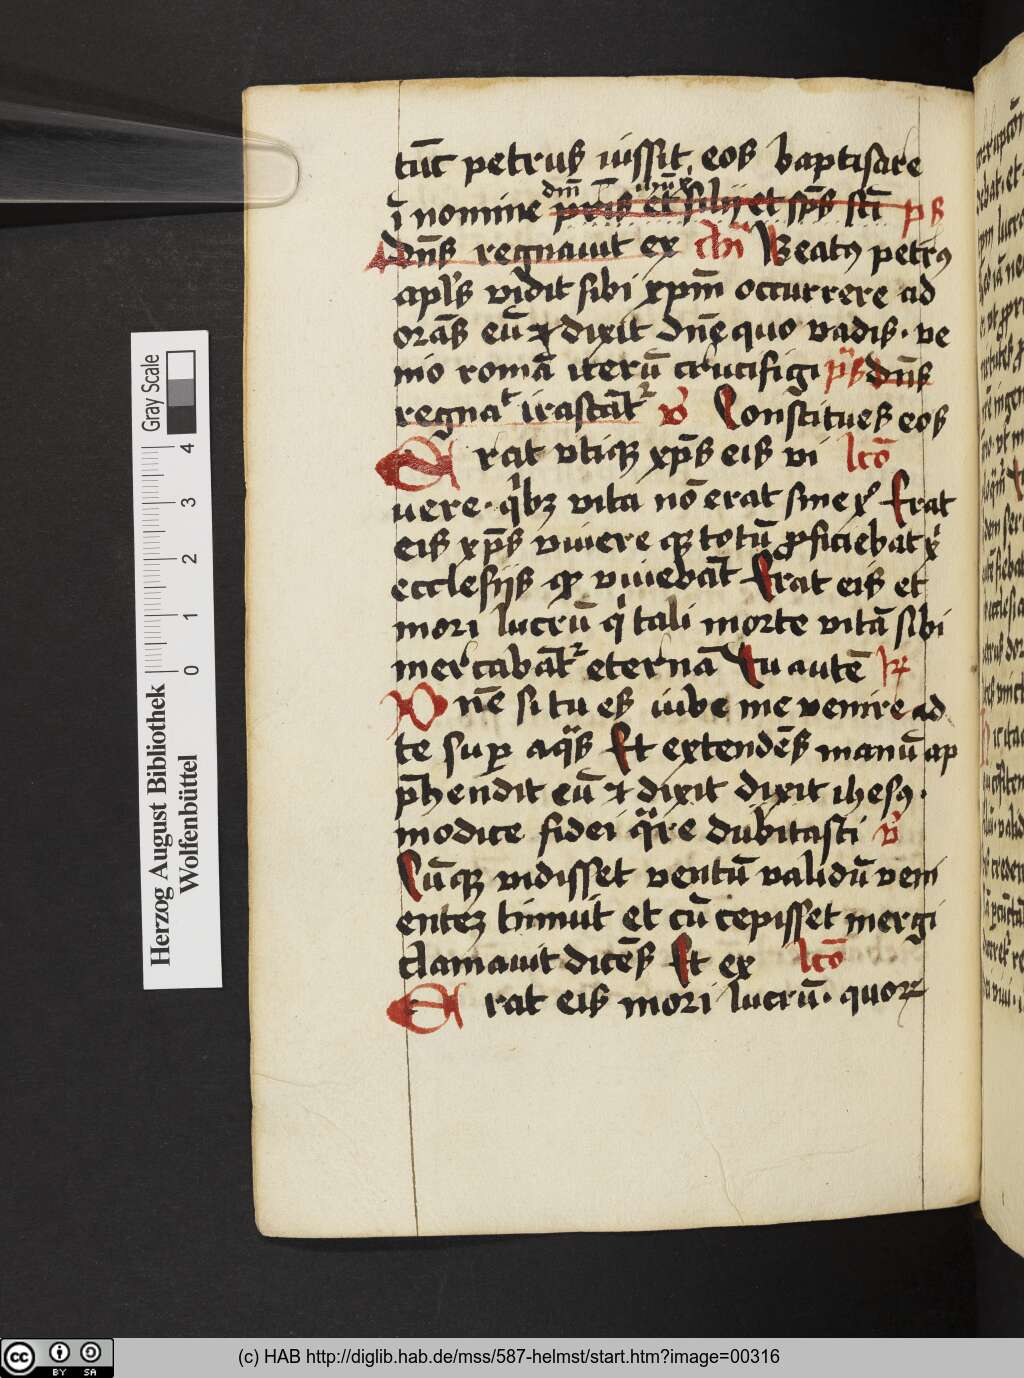 tūc petrus iussit eos baptisare
dm̄ ihū x
ī nomine pr̄is et filij et sp̄s sc̄i ps
dn̄s regnauit ex Beatꝰ petrꝰ
apl̄s vidit sibi xp̄m occurrere ad
orās eū et dixit dn̄e quo vadis · ve
nio romā iterū crucifigi p̄s dn̄s
regnat irascāt̄ v̄ Constitues eos
Erat vtiqꝫ xp̄s eis vi lc̄o
uere · qͥbꝫ vita nō erat sine x Erat
eis xp̄s viuere qꝫ totū ꝓficiebat x
ecclesijs qꝫ viuebāt Erat eis et
mori lucrū qͥ tali morte vitā sibi
mercabāt̄ eternā Tu autē R
Dn̄e si tu es iube me venire ad
te suꝑ aqͣs Et extendēs manū ap
p̄hendit eū et dixit dixit ihesꝯ ·
modice fidei qͣre dubitasti v̄
Cūqꝫ vidisset ventū validū veni
enteꝫ timuit et cū cepisset mergi
clamauit dicēs Et ex lc̄o
Erat eis mori lucrū · quoꝝ
Herzog August Bibliothek
Wolfenbüttel
Gray Scale
0 1 2 3 4
cc BY SA
(c) HAB http://diglib.hab.de/mss/587-helmst/start.htm?image=00316